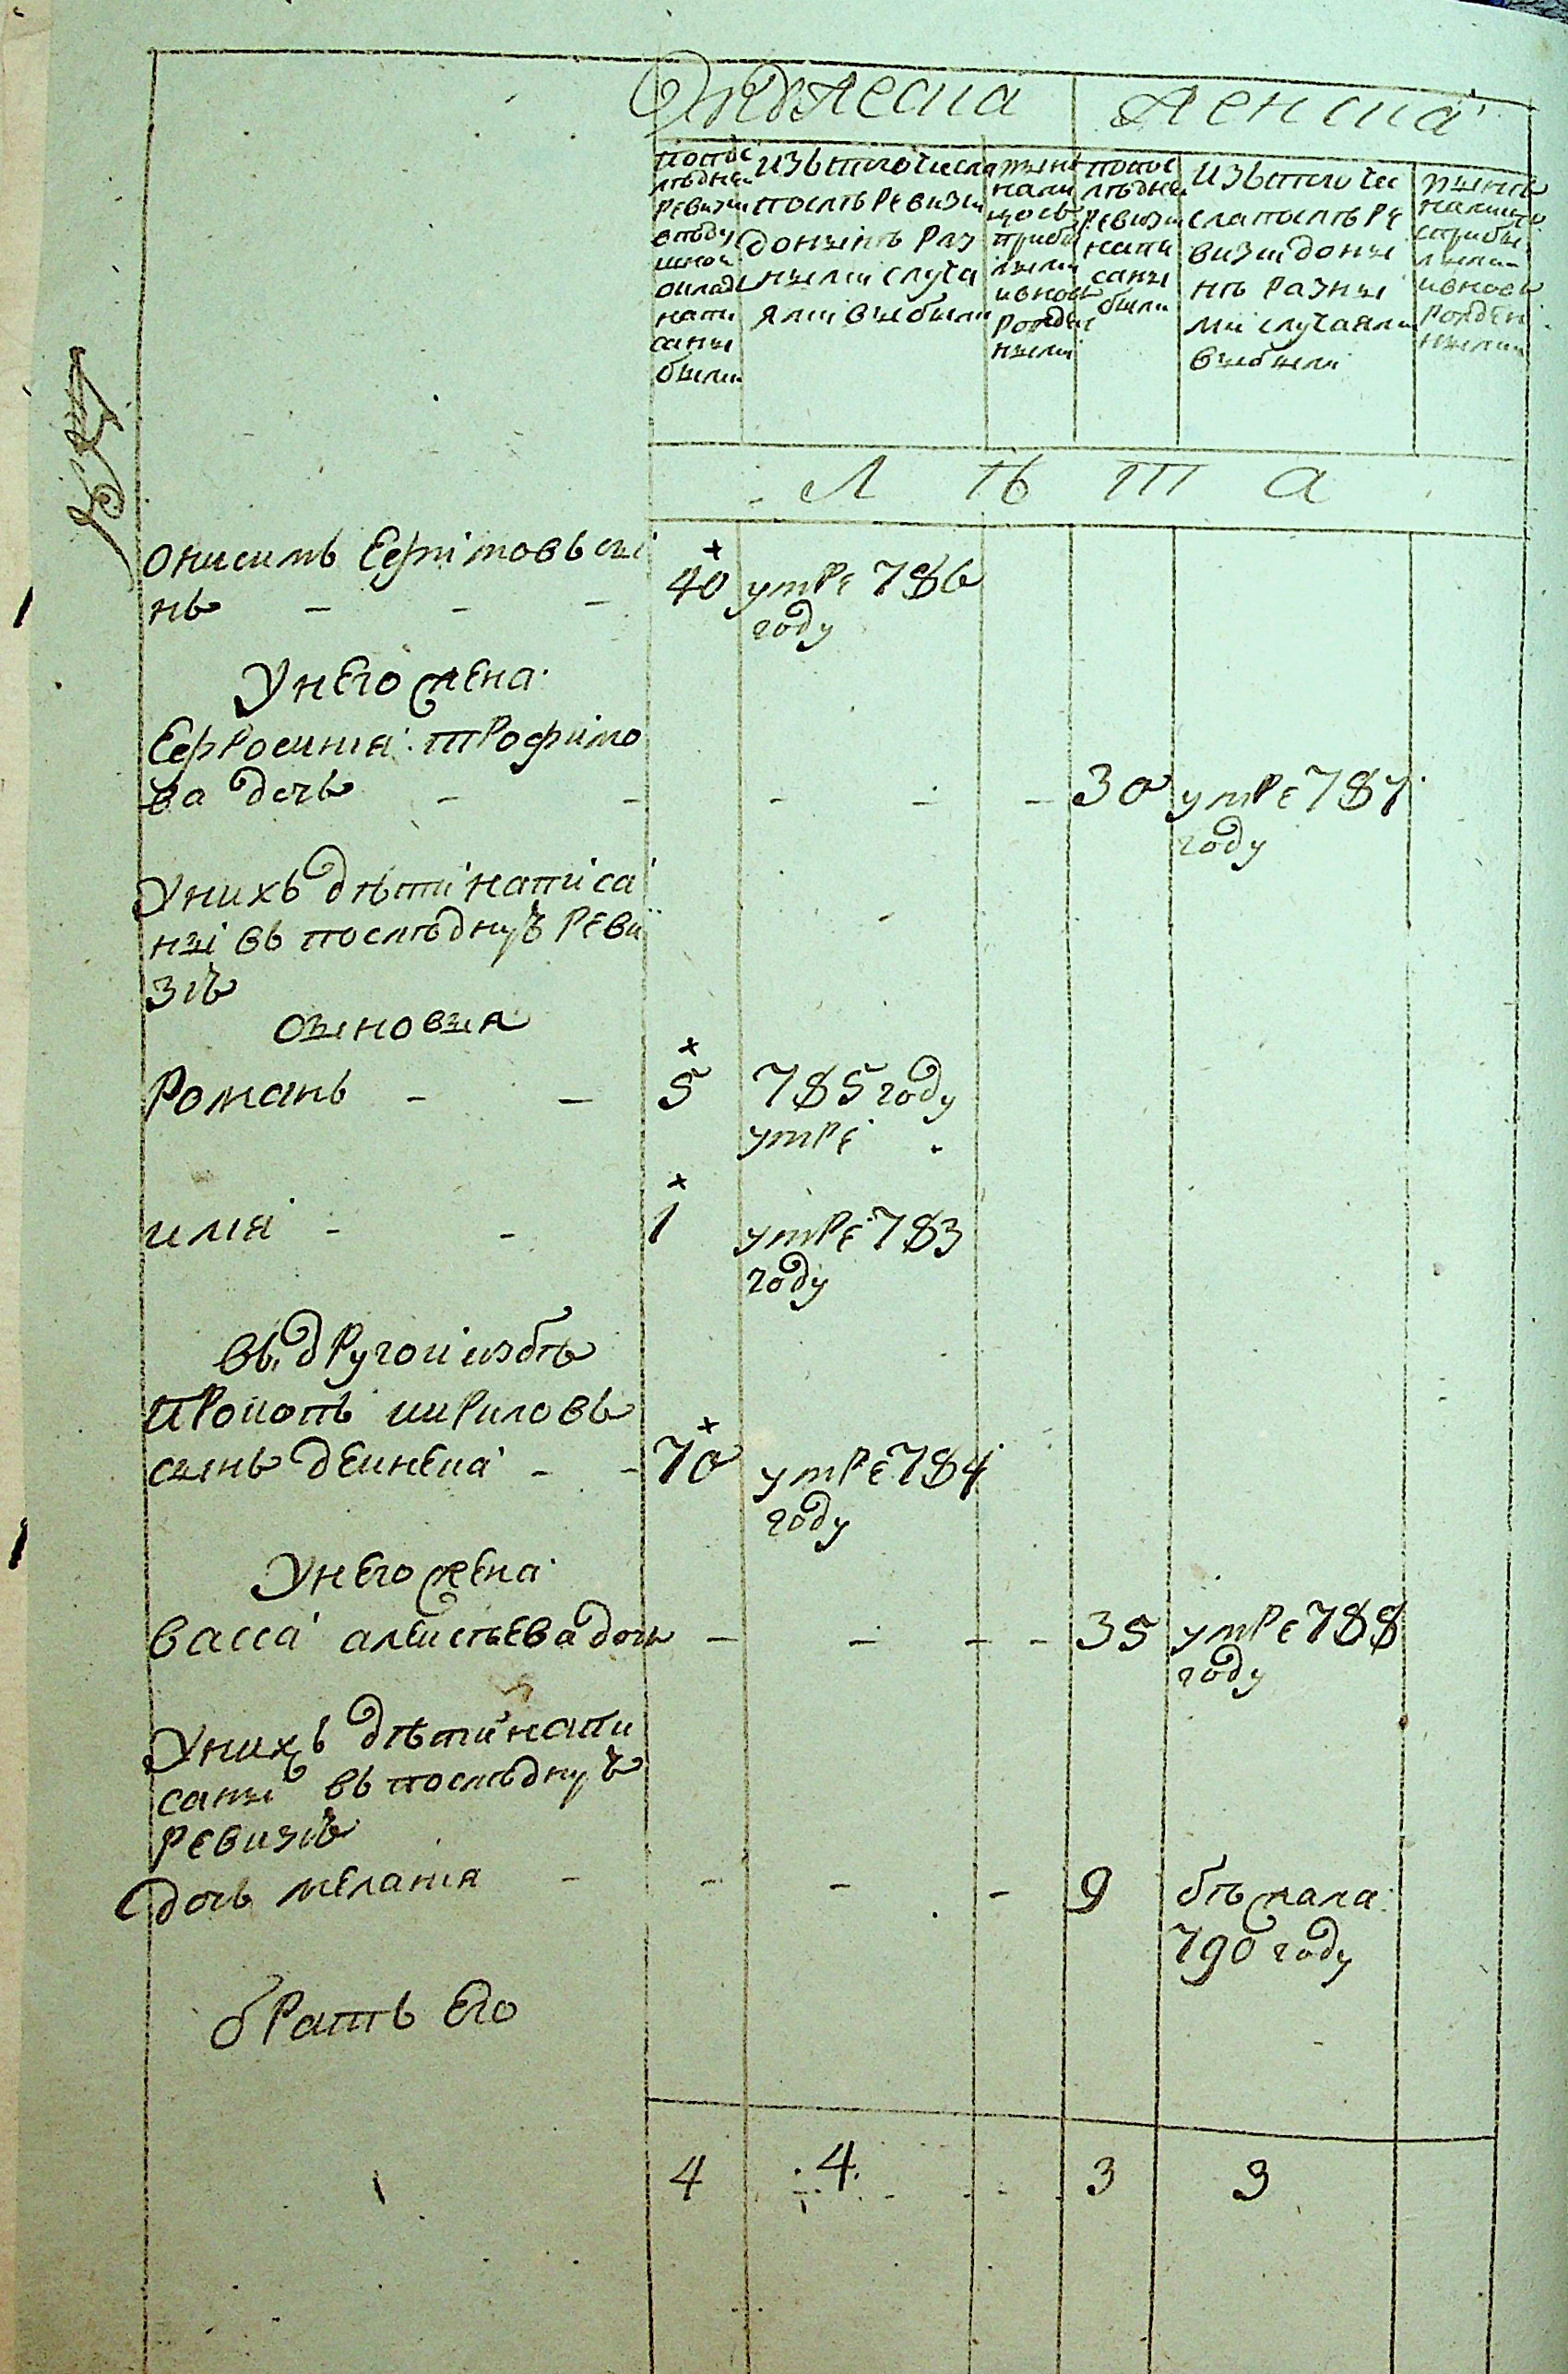 Мужеска
женска
попос
лѣдней
ревизи
вподу
шной
окладъ
напи
саны
были
изътого числа
послѣ ревизи
донынѣ раз
ными случа
ями выбыли
ныне
нали
цось
прибы
лыми
ивновь
рожден
ными
попос
лѣдней
ревизи
напи
саны
были
изътого чис
ла послѣ ре
визии доны
нѣ разны
ми случаями
выбыли
ныне
налицо
сприбы
лыми
ивновь
рожден
ными
Л ѣ т а
онисимъ Ефимовъ сы
нъ - - - 40 умре 786
году
Унего жена
Ефросиния трофимо
ва дочь - - - - - 30 умре 787
году
Унихъ дѣти написа
ны въ последную реви
зию
сыновья
Романъ - - 5 785 году
умре
илия - - 1 умре 783
году
въ другой избѣ
Прокопъ кириловъ
сынъ дейнека - - 70 умре 784
году
Унего жена
васса алексѣева дочь - - - - 35 умре 788
году
Унихъ дѣти напи
саны въ последную
ревизию
дочь мелания - - - - 9 бѣжала
790 году
братъ Его
4 4 3 3